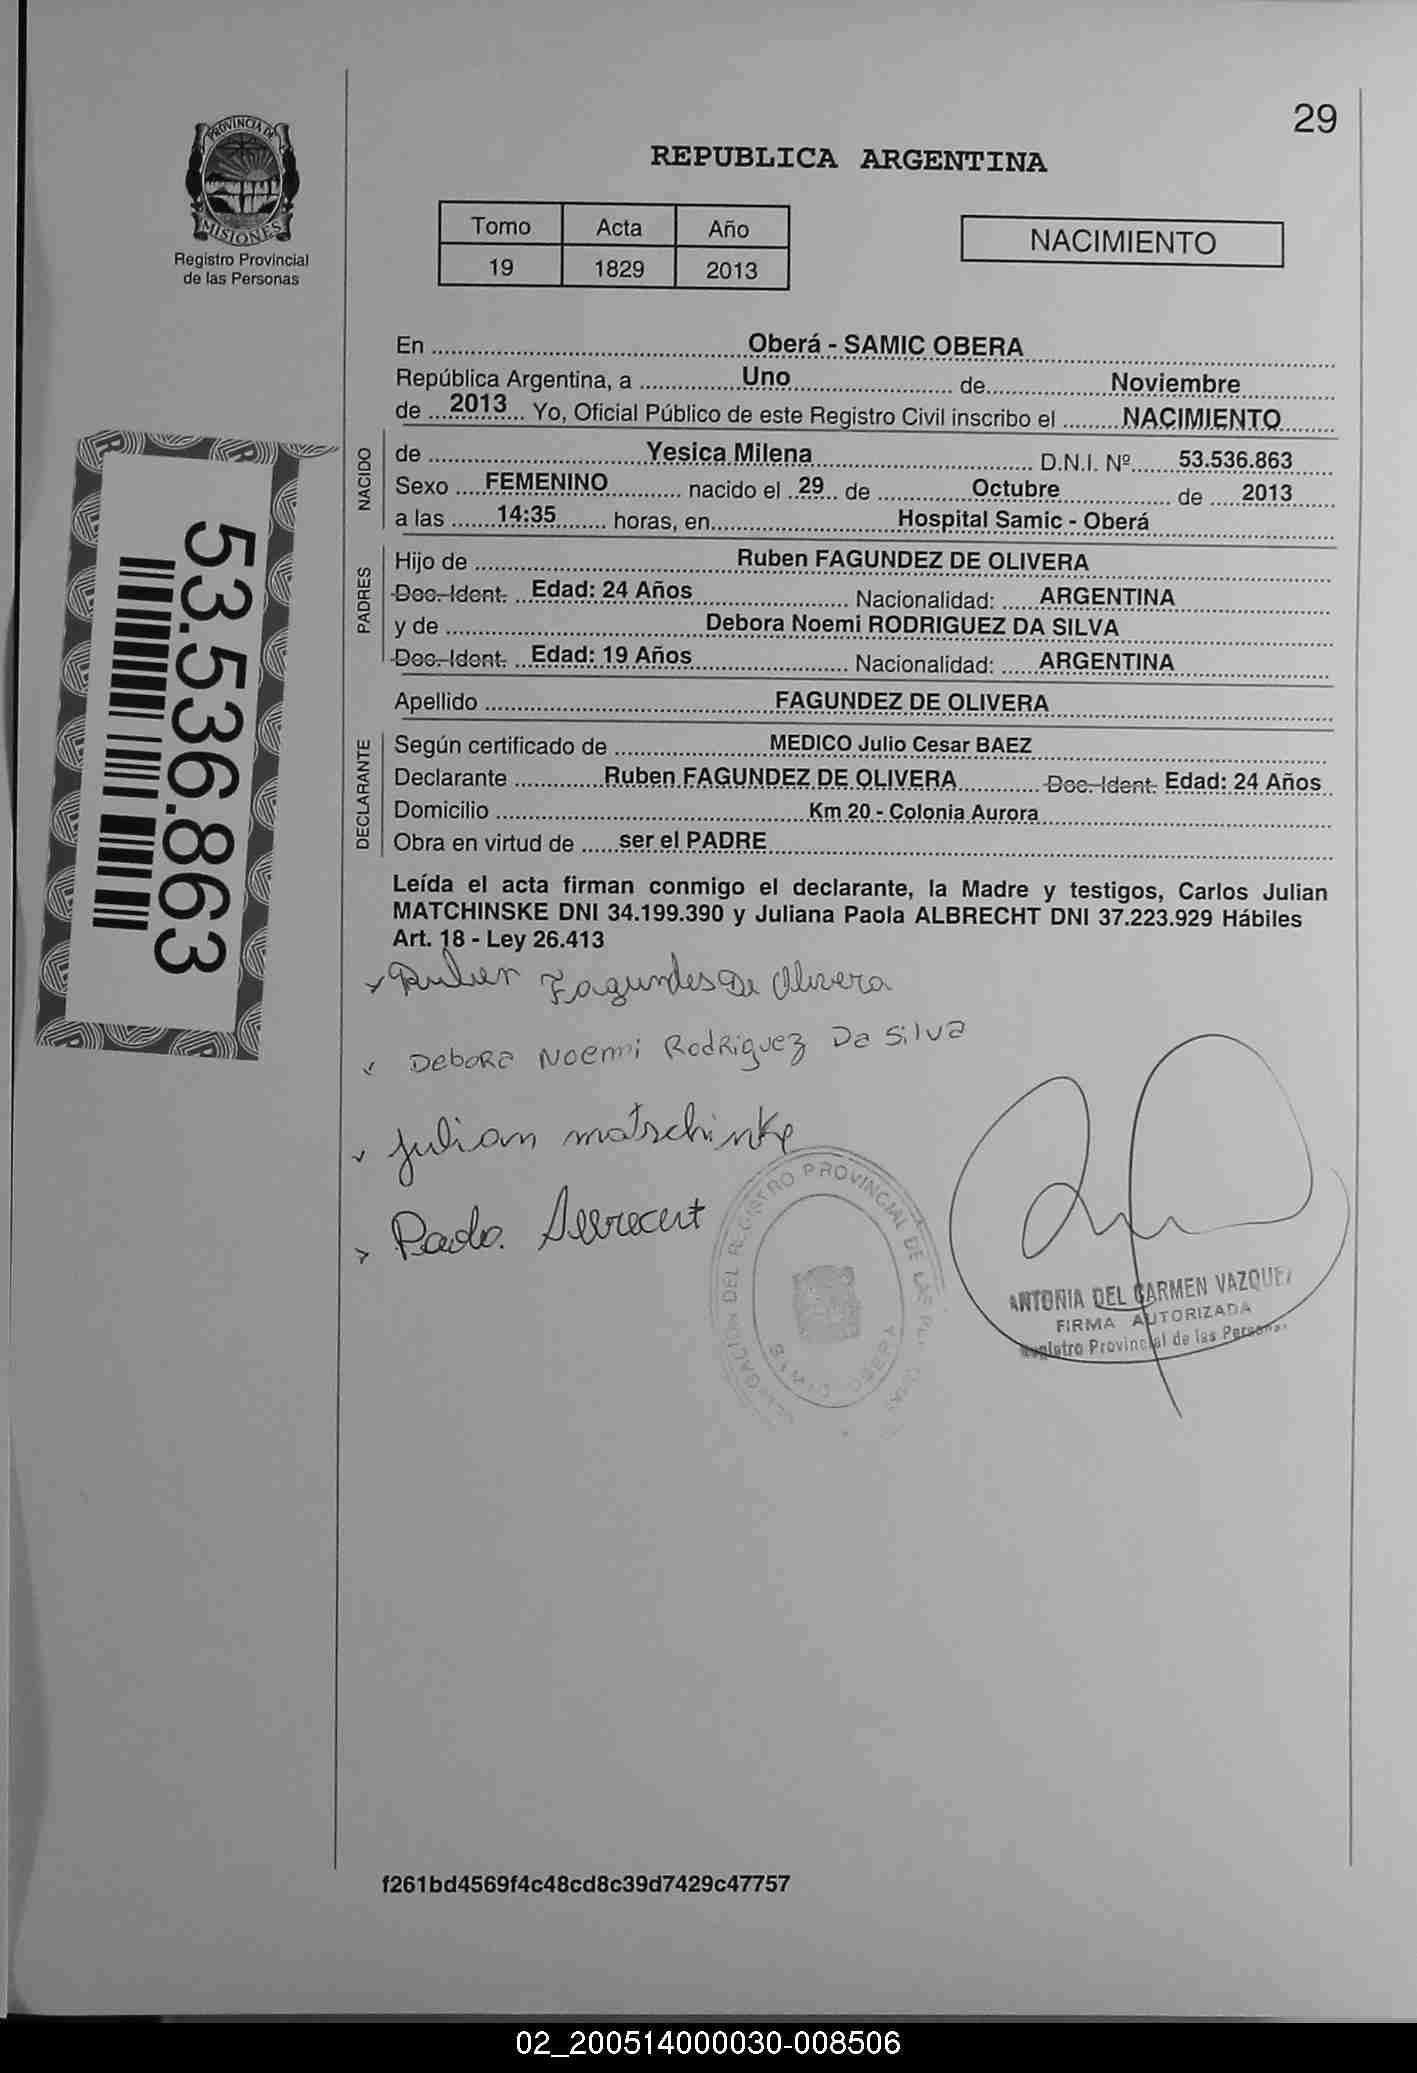 29
PROVINCIA DE
MISIONES
Registro Provincial
de las Personas
REPUBLICA ARGENTINA
Tomo Acta Año
19 1829 2013
NACIMIENTO
En Oberá - SAMIC OBERA
República Argentina, a Uno de Noviembre
de 2013 Yo, Oficial Público de este Registro Civil inscribo el NACIMIENTO
NACIDO
de Yesica Milena D.N.I. Nº 53.536.863
Sexo FEMENINO nacido el 29 de Octubre de 2013
a las 14:35 horas, en Hospital Samic - Oberá
PADRES
Hijo de Ruben FAGUNDEZ DE OLIVERA
Doc. Ident. Edad: 24 Años Nacionalidad: ARGENTINA
y de Debora Noemi RODRIGUEZ DA SILVA
Doc. Ident. Edad: 19 Años Nacionalidad: ARGENTINA
Apellido FAGUNDEZ DE OLIVERA
DECLARANTE
Según certificado de MEDICO Julio Cesar BAEZ
Declarante Ruben FAGUNDEZ DE OLIVERA Doc. Ident. Edad: 24 Años
Domicilio Km 20 - Colonia Aurora
Obra en virtud de ser el PADRE
Leída el acta firman conmigo el declarante, la Madre y testigos, Carlos Julian
MATCHINSKE DNI 34.199.390 y Juliana Paola ALBRECHT DNI 37.223.929 Hábiles
Art. 18 - Ley 26.413
53.536.863
Ruben Fagundes De Olivera
Debora Noemi Rodriguez Da Silva
Julian matschinke
Paola
DEL REGISTRO PROVINCIAL DE LAS
ANTONIA DEL CARMEN VAZQUEZ
FIRMA AUTORIZADA
Registro Provincial de las Personas
f261bd4569f4c48cd8c39d7429c47757
02_200514000030-008506